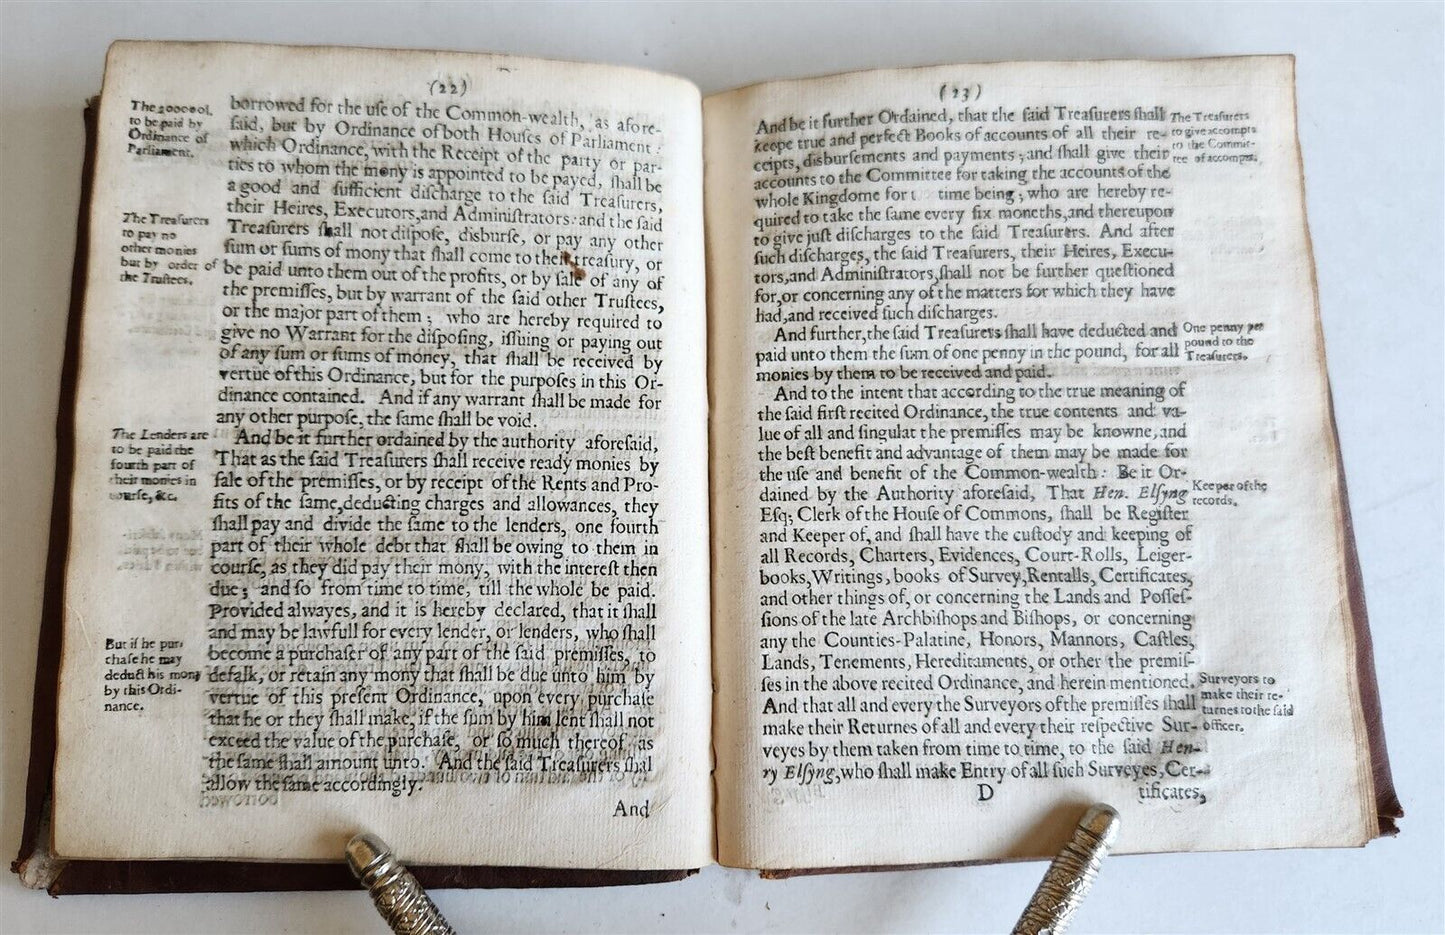 (22)
The 200000l.
to be paid by
Ordinance of
Parliament.
borrowed for the use of the Common-wealth, as afore-
said, but by Ordinance of both Houses of Parliament:
which Ordinance, with the Receipt of the party or par-
ties to whom the mony is appointed to be payed, shall be
a good and sufficient discharge to the said Treasurers,
their Heires, Executors, and Administrators: and the said
The Treasurers
to pay no
other monies
but by order of
the Trustees.
Treasurers shall not dispose, disburse, or pay any other
sum or sums of mony that shall come to their treasury, or
be paid unto them out of the profits, or by sale of any of
the premisses, but by warrant of the said other Trustees,
or the major part of them; who are hereby required to
give no Warrant for the disposing, issuing or paying out
of any sum or sums of money, that shall be received by
vertue of this Ordinance, but for the purposes in this Or-
dinance contained. And if any warrant shall be made for
any other purpose, the same shall be void.
The Lenders are
to be paid the
fourth part of
their monies in
course, &c.
And be it further ordained by the authority aforesaid,
That as the said Treasurers shall receive ready monies by
sale of the premisses, or by receipt of the Rents and Pro-
fits of the same, deducting charges and allowances, they
shall pay and divide the same to the lenders, one fourth
part of their whole debt that shall be owing to them in
course, as they did pay their mony, with the interest then
due; and so from time to time, till the whole be paid.
Provided alwayes, and it is hereby declared, that it shall
and may be lawfull for every lender, or lenders, who shall
But if he pur-
chase he may
deduct his mony
by this Ordi-
nance.
become a purchaser of any part of the said premisses, to
defalk, or retain any mony that shall be due unto him by
vertue of this present Ordinance, upon every purchase
that he or they shall make, if the sum by him lent shall not
exceed the value of the purchase, or so much thereof as
the same shall amount unto. And the said Treasurers shal
allow the same accordingly.
And
(23)
And be it further Ordained, that the said Treasurers shall
keepe true and perfect Books of accounts of all their re-
ceipts, disbursements and payments; and shall give their
accounts to the Committee for taking the accounts of the
whole Kingdome for t time being; who are hereby re-
quired to take the same every six moneths, and thereupon
to give just discharges to the said Treasurers. And after
such discharges, the said Treasurers, their Heires, Execu-
tors, and Administrators, shall not be further questioned
for, or concerning any of the matters for which they have
had, and received such discharges.
The Treasurers
to give accompts
to the Commit-
tee of accompts.
And further, the said Treasurers shall have deducted and
paid unto them the sum of one penny in the pound, for all
monies by them to be received and paid.
One penny per
pound to the
Treasurers.
And to the intent that according to the true meaning of
the said first recited Ordinance, the true contents and va-
lue of all and singular the premisses may be knowne, and
the best benefit and advantage of them may be made for
the use and benefit of the Common-wealth: Be it Or-
dained by the Authority aforesaid, That Hen. Elsyng
Esq; Clerk of the House of Commons, shall be Register
and Keeper of, and shall have the custody and keeping of
all Records, Charters, Evidences, Court-Rolls, Leiger-
books, Writings, books of Survey, Rentalls, Certificates,
and other things of, or concerning the Lands and Posses-
sions of the late Archbishops and Bishops, or concerning
any the Counties-Palatine, Honors, Mannors, Castles,
Lands, Tenements, Hereditaments, or other the premis-
ses in the above recited Ordinance, and herein mentioned.
Keeper of the
records.
And that all and every the Surveyors of the premisses shall
make their Returnes of all and every their respective Sur-
veyes by them taken from time to time, to the said Hen-
ry Elsyng, who shall make Entry of all such Surveyes, Cer-
Surveyors to
make their re-
turnes to the said
officer.
D
tificates,